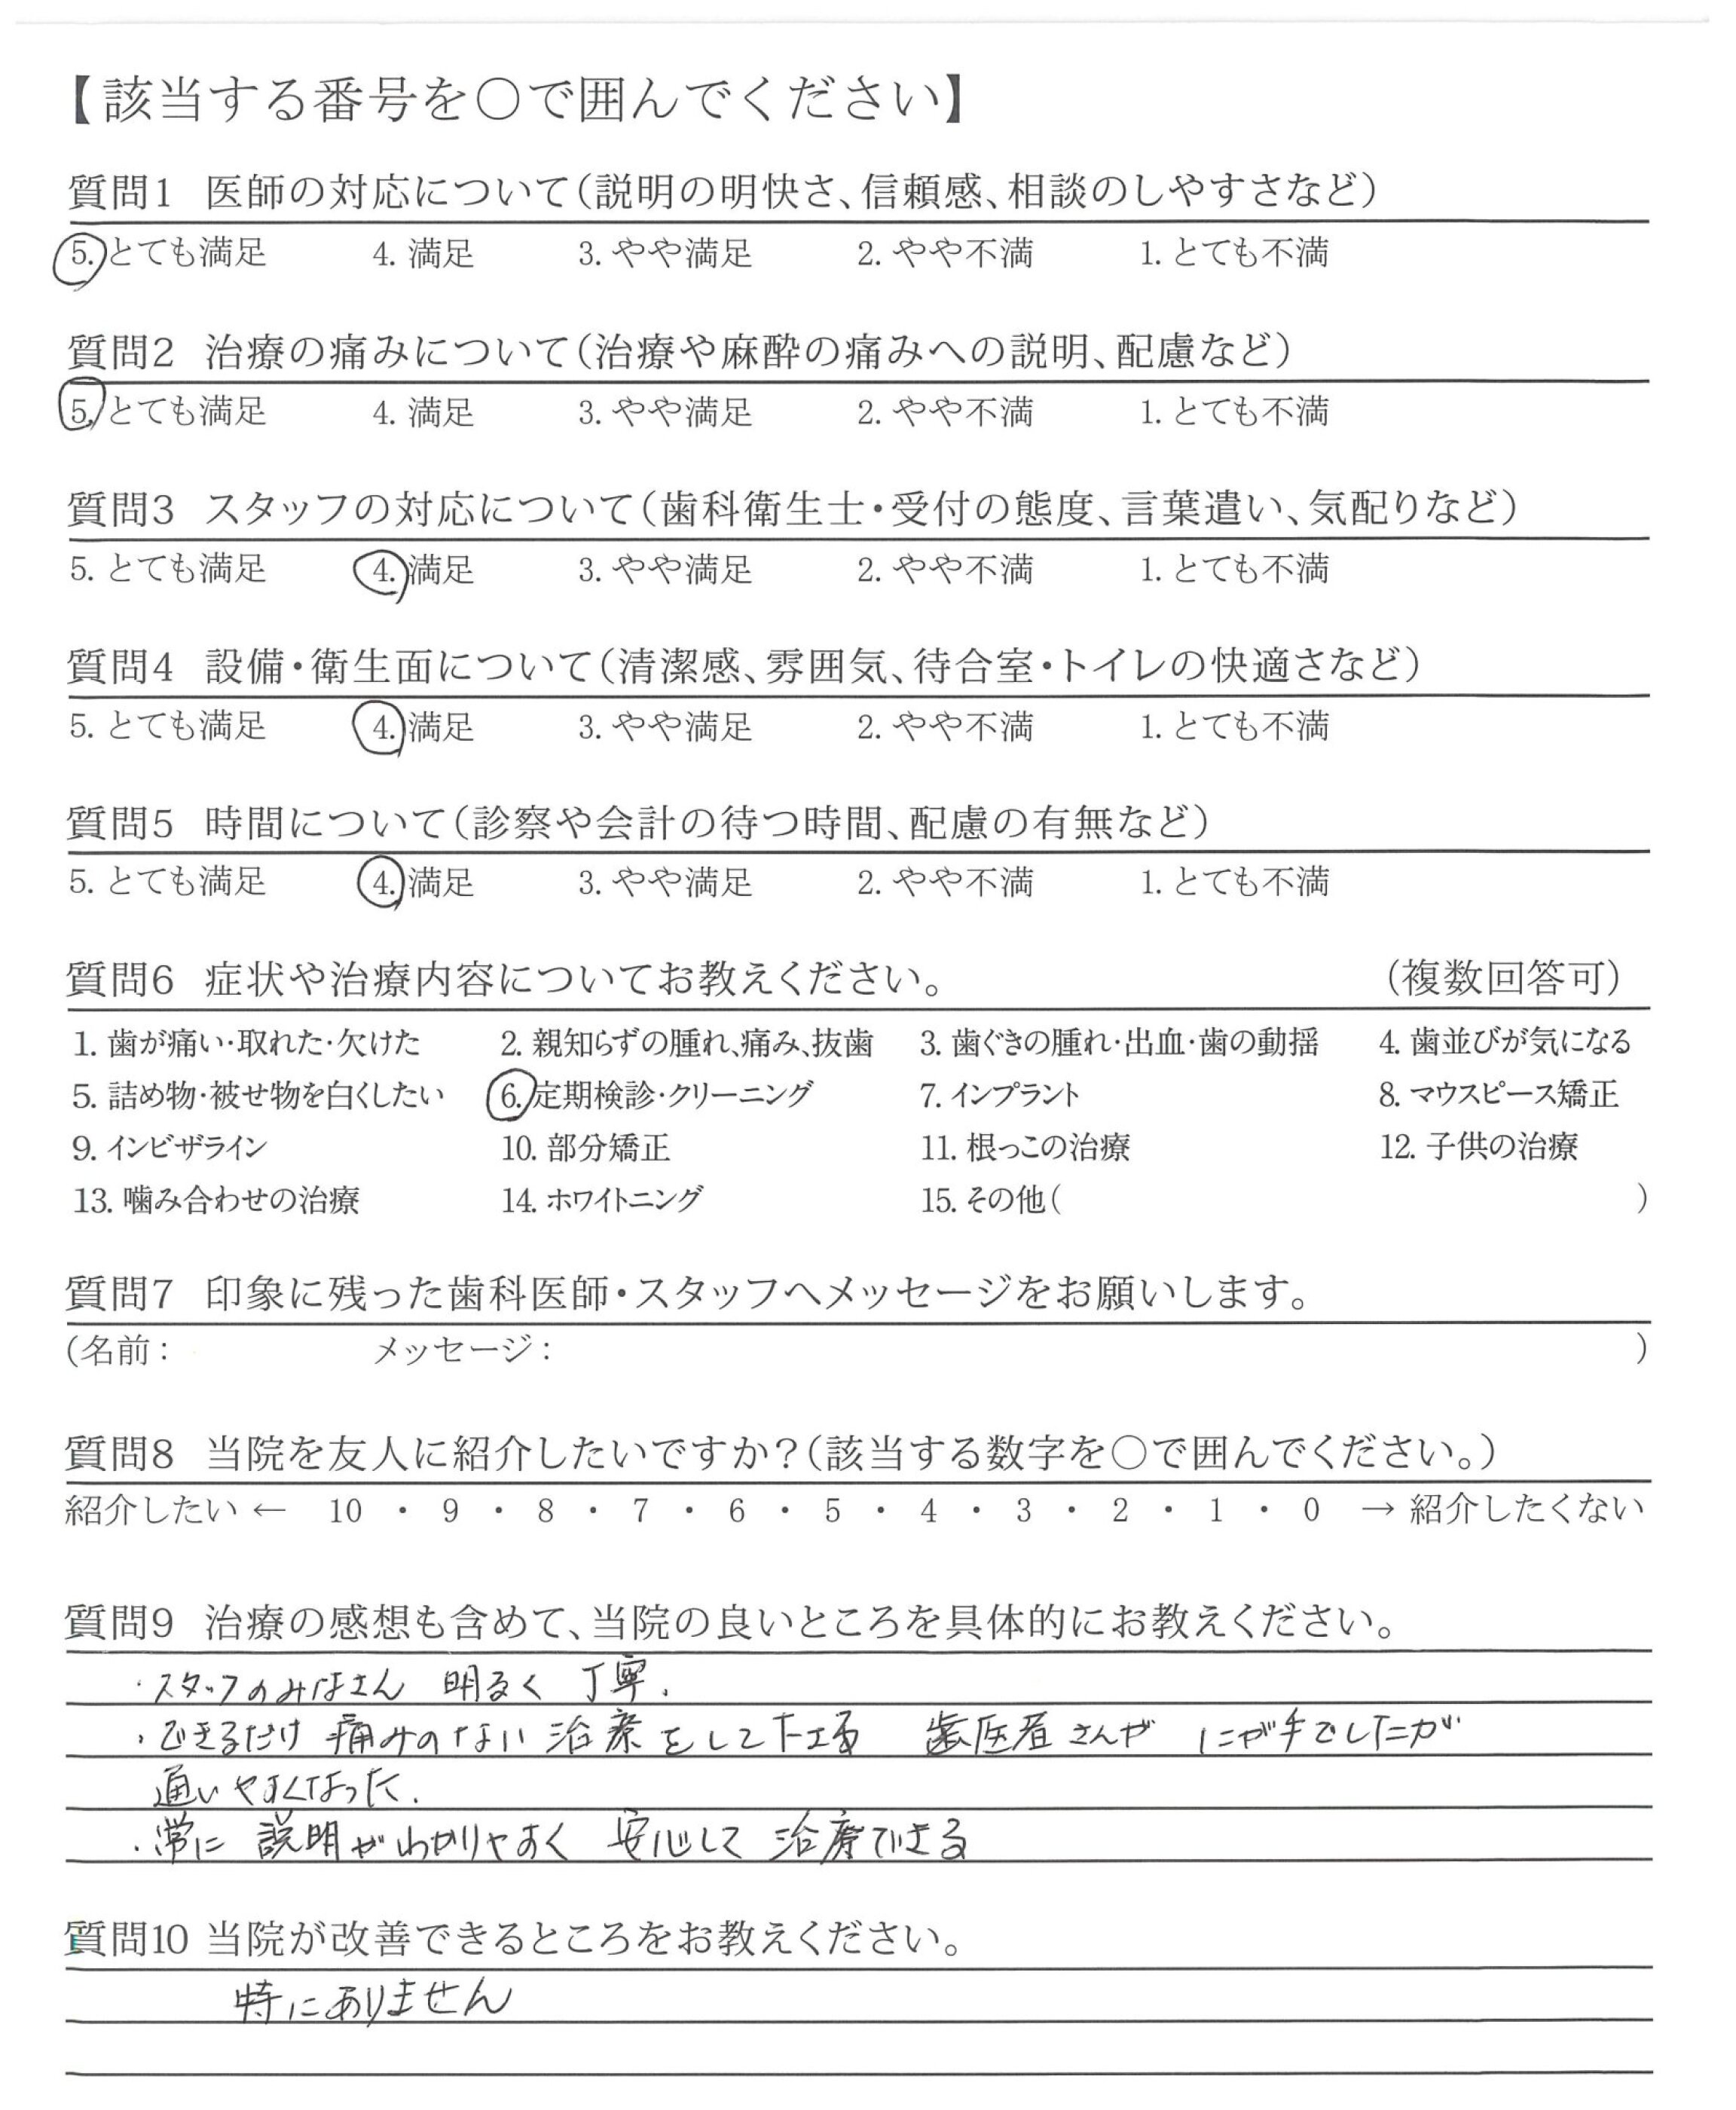 【該当する番号を○で囲んでください】
質問1 医師の対応について(説明の明快さ、信頼感、相談のしやすさなど)
5. とても満足 4. 満足 3. やや満足 2. やや不満 1. とても不満
質問2 治療の痛みについて(治療や麻酔の痛みへの説明、配慮など)
5. とても満足 4. 満足 3. やや満足 2. やや不満 1. とても不満
質問3 スタッフの対応について(歯科衛生士・受付の態度、言葉遣い、気配りなど)
5. とても満足 4. 満足 3. やや満足 2. やや不満 1. とても不満
質問4 設備・衛生面について(清潔感、雰囲気、待合室・トイレの快適さなど)
5. とても満足 4. 満足 3. やや満足 2. やや不満 1. とても不満
質問5 時間について(診察や会計の待つ時間、配慮の有無など)
5. とても満足 4. 満足 3. やや満足 2. やや不満 1. とても不満
質問6 症状や治療内容についてお教えください。 (複数回答可)
1. 歯が痛い・取れた・欠けた 2. 親知らずの腫れ、痛み、抜歯 3. 歯ぐきの腫れ・出血・歯の動揺 4. 歯並びが気になる
5. 詰め物・被せ物を白くしたい 6. 定期検診・クリーニング 7. インプラント 8. マウスピース矯正
9. インビザライン 10. 部分矯正 11. 根っこの治療 12. 子供の治療
13. 噛み合わせの治療 14. ホワイトニング 15. その他( )
質問7 印象に残った歯科医師・スタッフへメッセージをお願いします。
(名前: メッセージ: )
質問8 当院を友人に紹介したいですか?(該当する数字を○で囲んでください。)
紹介したい ← 10 ・ 9 ・ 8 ・ 7 ・ 6 ・ 5 ・ 4 ・ 3 ・ 2 ・ 1 ・ 0 → 紹介したくない
質問9 治療の感想も含めて、当院の良いところを具体的にお教えください。
・スタッフのみなさん 明るく 丁寧.
・できるだけ 痛みのない 治療をして下さる 歯医者さんが にが手でしたが
通いやすくなった.
・常に 説明がわかりやすく 安心して 治療できる
質問10 当院が改善できるところをお教えください。
特にありません